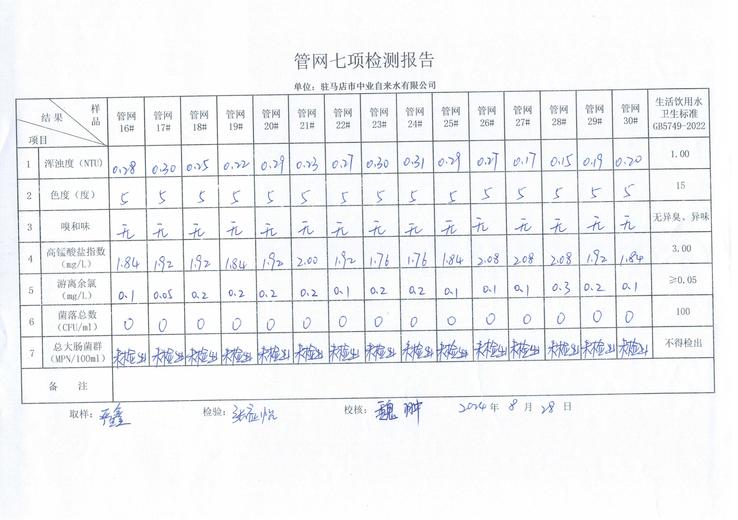 管网七项检测报告
单位：驻马店市中业自来水有限公司
结果 样品 项目 管网16# 管网17# 管网18# 管网19# 管网20# 管网21# 管网22# 管网23# 管网24# 管网25# 管网26# 管网27# 管网28# 管网29# 管网30# 生活饮用水卫生标准GB5749-2022
1 浑浊度（NTU） 0.28 0.30 0.25 0.22 0.29 0.23 0.27 0.30 0.31 0.29 0.27 0.17 0.15 0.19 0.20 1.00
2 色度（度） 5 5 5 5 5 5 5 5 5 5 5 5 5 5 5 15
3 嗅和味 无 无 无 无 无 无 无 无 无 无 无 无 无 无 无 无异臭、异味
4 高锰酸盐指数（mg/L） 1.84 1.92 1.92 1.84 1.92 2.00 1.92 1.76 1.76 1.84 2.08 2.08 2.08 1.92 1.84 3.00
5 游离余氯（mg/L） 0.1 0.05 0.2 0.2 0.2 0.2 0.1 0.2 0.2 0.1 0.1 0.1 0.3 0.2 0.1 ≥0.05
6 菌落总数（CFU/ml） 0 0 0 0 0 0 0 0 0 0 0 0 0 0 0 100
7 总大肠菌群（MPN/100ml） 未检出 未检出 未检出 未检出 未检出 未检出 未检出 未检出 未检出 未检出 未检出 未检出 未检出 未检出 未检出 不得检出
备 注
取样： 检验： 校核：魏 2024年8月28日